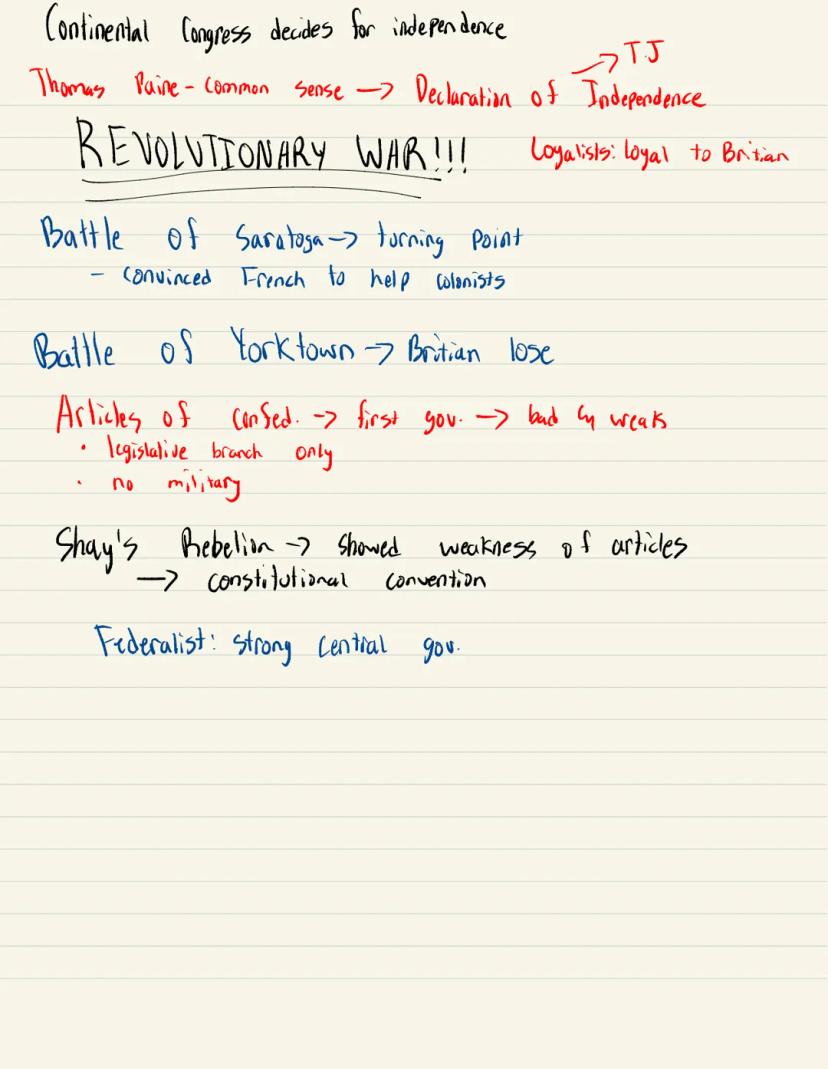 Continental Congress decides for independence
→ TJ
Thomas Paine - Common sense → Declaration of Independence
REVOLUTIONARY WAR!!!
Loyalists: loyal to Britian
Battle of Saratoga → turning point
- convinced French to help colonists
Battle of Yorktown → Britian lose
Articles of confed. → first gov. → bad & weak
• legislative branch only
• no military
Shay's Rebelion → showed weakness of articles
→ constitutional convention
Federalist: strong central gov.